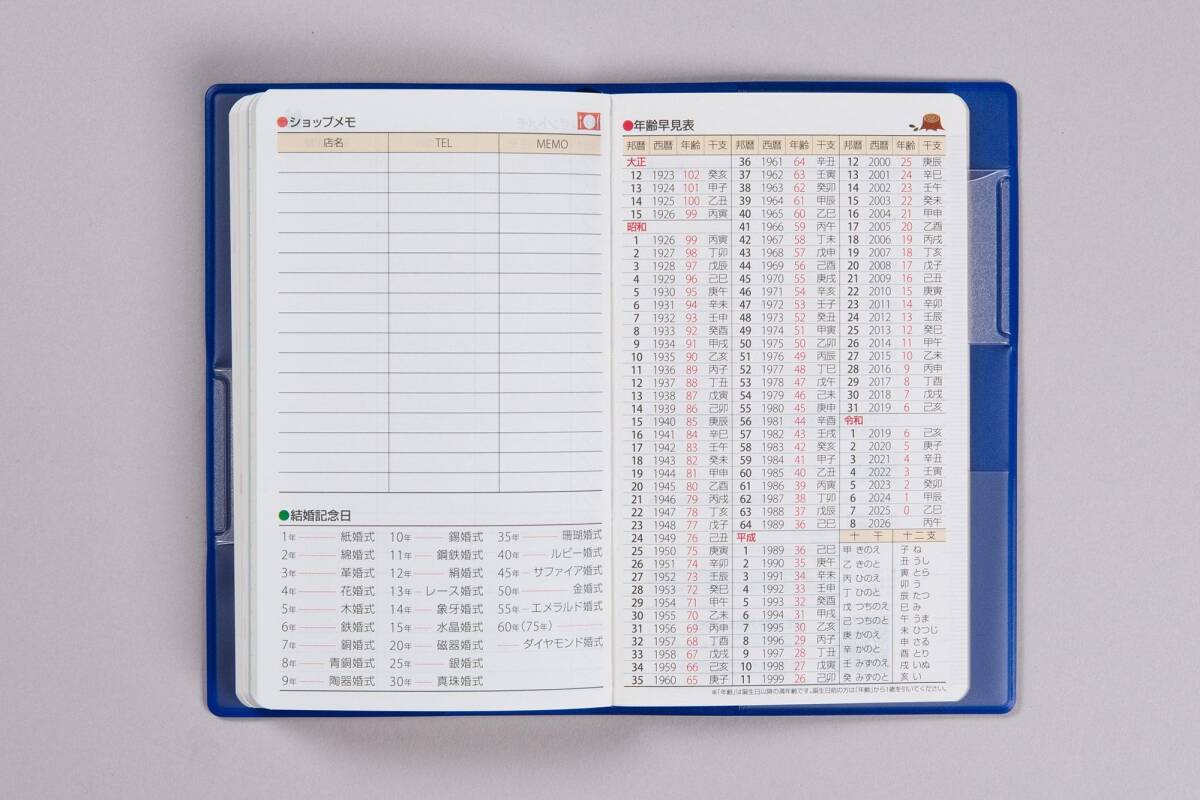 ショップメモ
店名 TEL MEMO
結婚記念日
1年 紙婚式 10年 錫婚式 35年 珊瑚婚式
2年 綿婚式 11年 鋼鉄婚式 40年 ルビー婚式
3年 革婚式 12年 絹婚式 45年 サファイア婚式
4年 花婚式 13年 レース婚式 50年 金婚式
5年 木婚式 14年 象牙婚式 55年 エメラルド婚式
6年 鉄婚式 15年 水晶婚式 60年(75年)
7年 銅婚式 20年 磁器婚式 ダイヤモンド婚式
8年 青銅婚式 25年 銀婚式
9年 陶器婚式 30年 真珠婚式
年齢早見表
邦暦 西暦 年齢 干支 邦暦 西暦 年齢 干支 邦暦 西暦 年齢 干支
大正 36 1961 64 辛丑 12 2000 25 庚辰
12 1923 102 癸亥 37 1962 63 壬寅 13 2001 24 辛巳
13 1924 101 甲子 38 1963 62 癸卯 14 2002 23 壬午
14 1925 100 乙丑 39 1964 61 甲辰 15 2003 22 癸未
15 1926 99 丙寅 40 1965 60 乙巳 16 2004 21 甲申
昭和 41 1966 59 丙午 17 2005 20 乙酉
1 1926 99 丙寅 42 1967 58 丁未 18 2006 19 丙戌
2 1927 98 丁卯 43 1968 57 戊申 19 2007 18 丁亥
3 1928 97 戊辰 44 1969 56 己酉 20 2008 17 戊子
4 1929 96 己巳 45 1970 55 庚戌 21 2009 16 己丑
5 1930 95 庚午 46 1971 54 辛亥 22 2010 15 庚寅
6 1931 94 辛未 47 1972 53 壬子 23 2011 14 辛卯
7 1932 93 壬申 48 1973 52 癸丑 24 2012 13 壬辰
8 1933 92 癸酉 49 1974 51 甲寅 25 2013 12 癸巳
9 1934 91 甲戌 50 1975 50 乙卯 26 2014 11 甲午
10 1935 90 乙亥 51 1976 49 丙辰 27 2015 10 乙未
11 1936 89 丙子 52 1977 48 丁巳 28 2016 9 丙申
12 1937 88 丁丑 53 1978 47 戊午 29 2017 8 丁酉
13 1938 87 戊寅 54 1979 46 己未 30 2018 7 戊戌
14 1939 86 己卯 55 1980 45 庚申 31 2019 6 己亥
15 1940 85 庚辰 56 1981 44 辛酉 令和
16 1941 84 辛巳 57 1982 43 壬戌 1 2019 6 己亥
17 1942 83 壬午 58 1983 42 癸亥 2 2020 5 庚子
18 1943 82 癸未 59 1984 41 甲子 3 2021 4 辛丑
19 1944 81 甲申 60 1985 40 乙丑 4 2022 3 壬寅
20 1945 80 乙酉 61 1986 39 丙寅 5 2023 2 癸卯
21 1946 79 丙戌 62 1987 38 丁卯 6 2024 1 甲辰
22 1947 78 丁亥 63 1988 37 戊辰 7 2025 0 乙巳
23 1948 77 戊子 64 1989 36 己巳 8 2026 丙午
24 1949 76 己丑 平成 十干 十二支
25 1950 75 庚寅 1 1989 36 己巳 甲 きのえ 子 ね
26 1951 74 辛卯 2 1990 35 庚午 乙 きのと 丑 うし
27 1952 73 壬辰 3 1991 34 辛未 丙 ひのえ 寅 とら
28 1953 72 癸巳 4 1992 33 壬申 丁 ひのと 卯 う
29 1954 71 甲午 5 1993 32 癸酉 戊 つちのえ 辰 たつ
30 1955 70 乙未 6 1994 31 甲戌 己 つちのと 巳 み
31 1956 69 丙申 7 1995 30 乙亥 庚 かのえ 午 うま
32 1957 68 丁酉 8 1996 29 丙子 辛 かのと 未 ひつじ
33 1958 67 戊戌 9 1997 28 丁丑 壬 みずのえ 申 さる
34 1959 66 己亥 10 1998 27 戊寅 癸 みずのと 酉 とり
35 1960 65 庚子 11 1999 26 己卯 戌 いぬ
亥 い
※「年齢」は誕生日以降の満年齢です。誕生日前の方は「年齢」から1歳を引いてください。